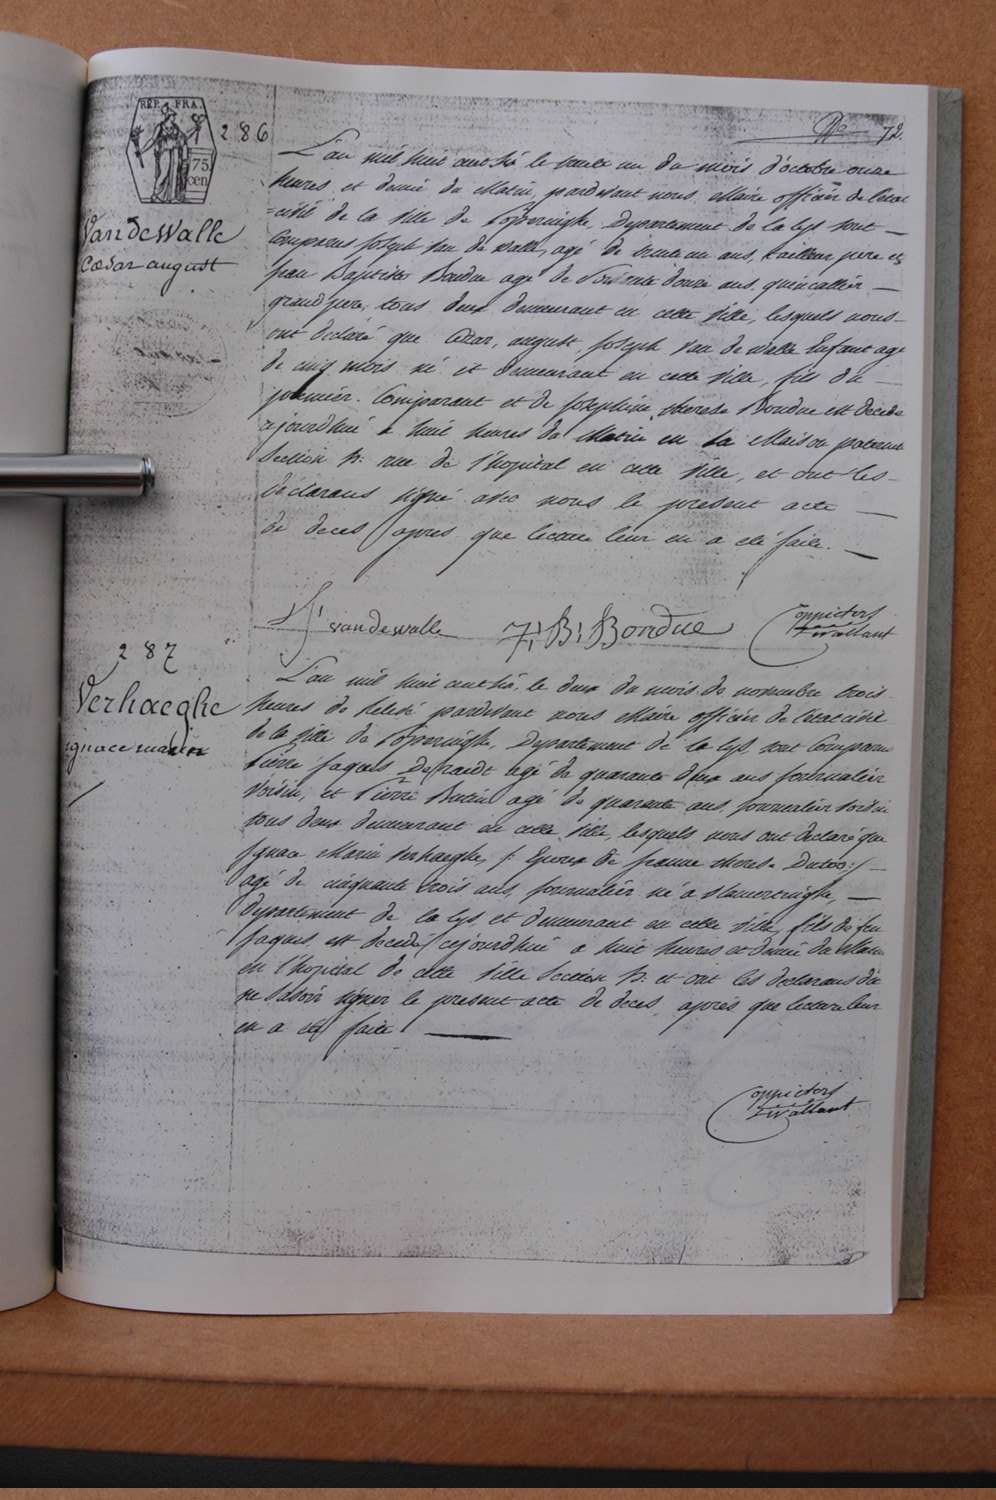 REP. FRA.
75
cen
72
286
Van de Walle
Cæsar august
L'an mil huit cent six le trente un du mois d'octobre onze
heures et demie du Matin, pardevant nous Maire officier de l'état
civil de la ville de Poperinghe, Departement de la Lys sont
Comparus Joseph Van de Walle, agé de trente un ans, tailleur pere et
Jean Baptiste Bondue agé de soixante douze ans, quincallier
grand pere, tous deux demeurant en cette ville, lesquels nous
ont declaré que Cézar, august, Joseph Van de Walle Enfant agé
de cinq mois né et demeurant en cette ville, fils du
premier Comparant et de Josephine therese Bondue est decedé
cejourdhui à huit heures du Matin en la Maison paternel
Section B: rue de l'hopital en cette ville, et ont les
déclarans signé avec nous le présent acte
de deces apres que lecture leur en a été faite.
J: van de walle J: B: Bondue Coppieters
t'wallant
287
Verhaeghe
ignace martin
L'an mil huit cent six le deux du mois de novembre trois
heures de relevé pardevant nous Maire officier de l'état civil
de la ville de Poperinghe, Departement de la Lys, sont Comparus
Pierre Jaques Defraeidt agé de quarante deux ans journalier
Voisin, et Pierre Butin agé de quarante ans, journalier voisin
tous deux demeurant en cette ville, lesquels nous ont declaré que
Ignace Marin Verhaeghe, /: Epoux de jeanne therese Dutoo:/
agé de cinquante trois ans, journalier né à Vlamertinghe,
Departement de la Lys, et demeurant en cette ville, fils de feu
Jaques, est decedé cejourdhui à huit heures et demie du Matin
en l'hopital de cette ville Section B: et ont les declarans dit
ne savoir signer le present acte de deces, aprés que lecture leur
en a été faite
Coppieters
t'wallant